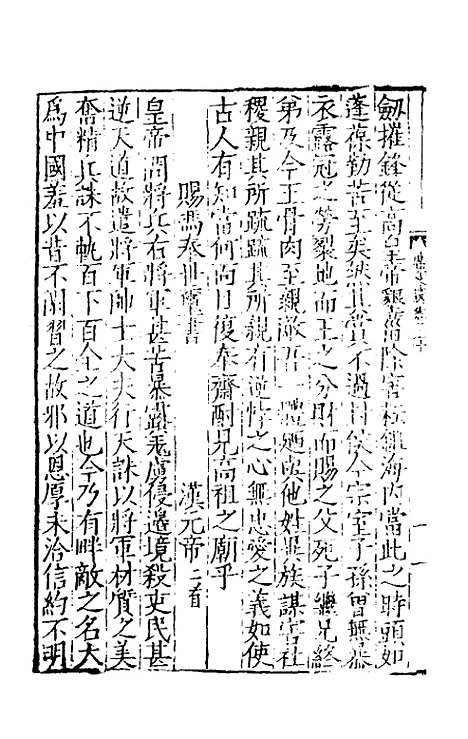 劒摧鋒從高皇帝艱菑除害桓鎮海内當此之時頭如
蓬葆勤苦至矣然其賞不過封侯今宗室子孫曾無暴
衣露冠之勞裂地而王之分財而賜之父死子繼兄終
弟及今王骨肉至親敵吾一體廼與他姓異族謀害社
稷親其所疏疏其所親有逆悖之心無忠愛之義如使
古人有知當何面目復奉齋酎見高祖之廟乎
賜馮奉世璽書 漢元帝二首
皇帝問將兵右將軍甚苦暴露羌虜侵邊境殺吏民甚
逆天道故遣將軍帥士大夫行天誅以將軍材質之美
奮精兵誅不軌百下百全之道也今乃有畔敵之名大
爲中國羞以昔不閑習之故邪以恩厚未洽信約不明